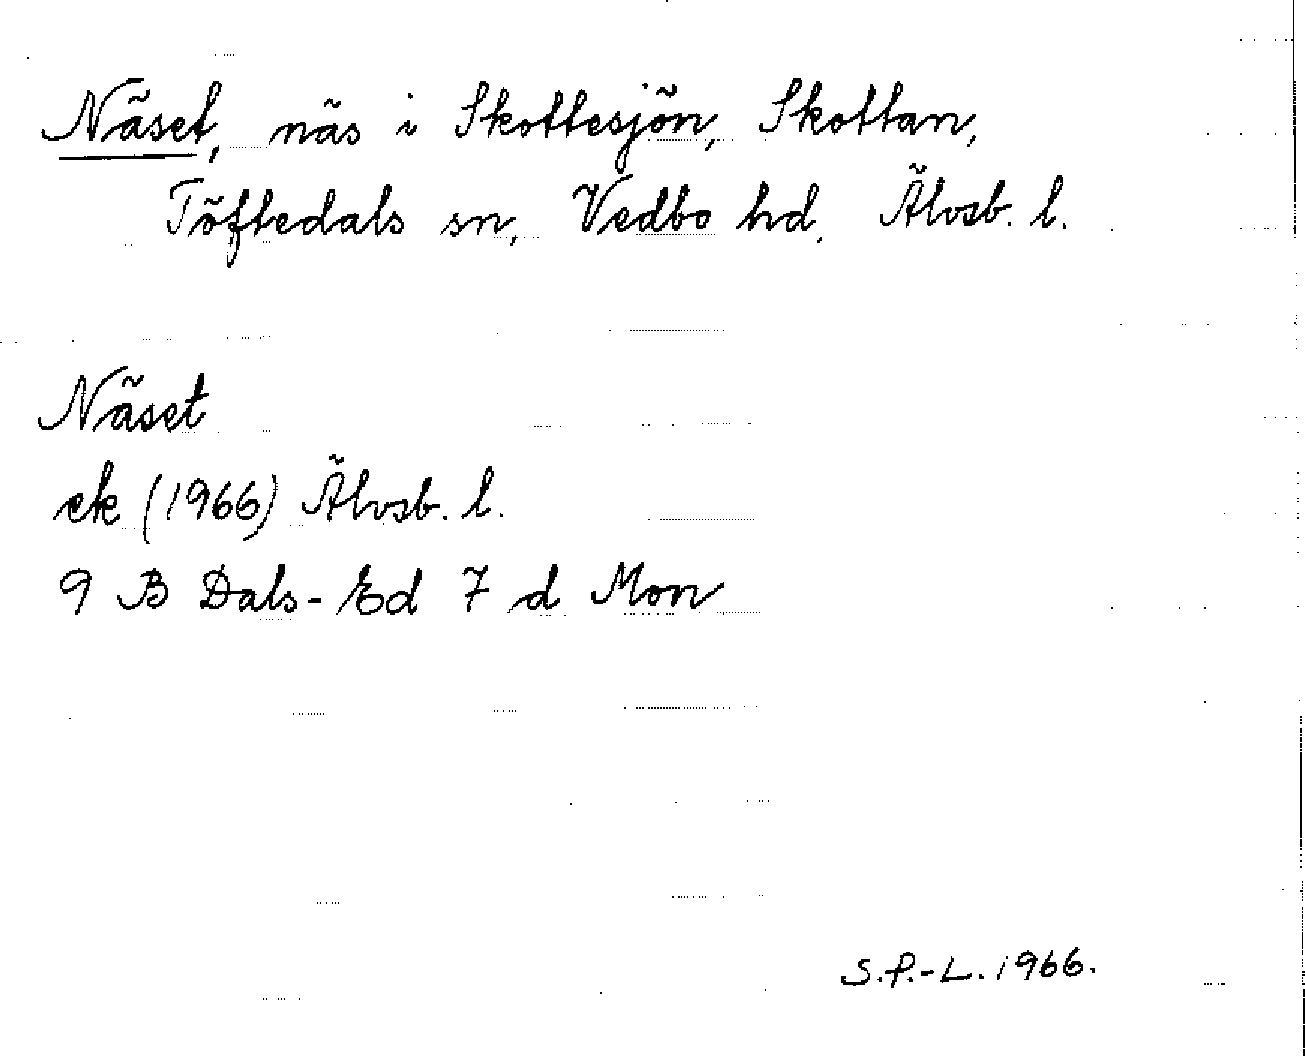 Näset, näs i Skottesjön, Skottan,
Töftedals sn, Vedbo hd. Älvsb. l.
Näset
ek (1966) Älvsb. l.
9 B Dals-Ed 7 d Mon
S.P.-L. 1966.